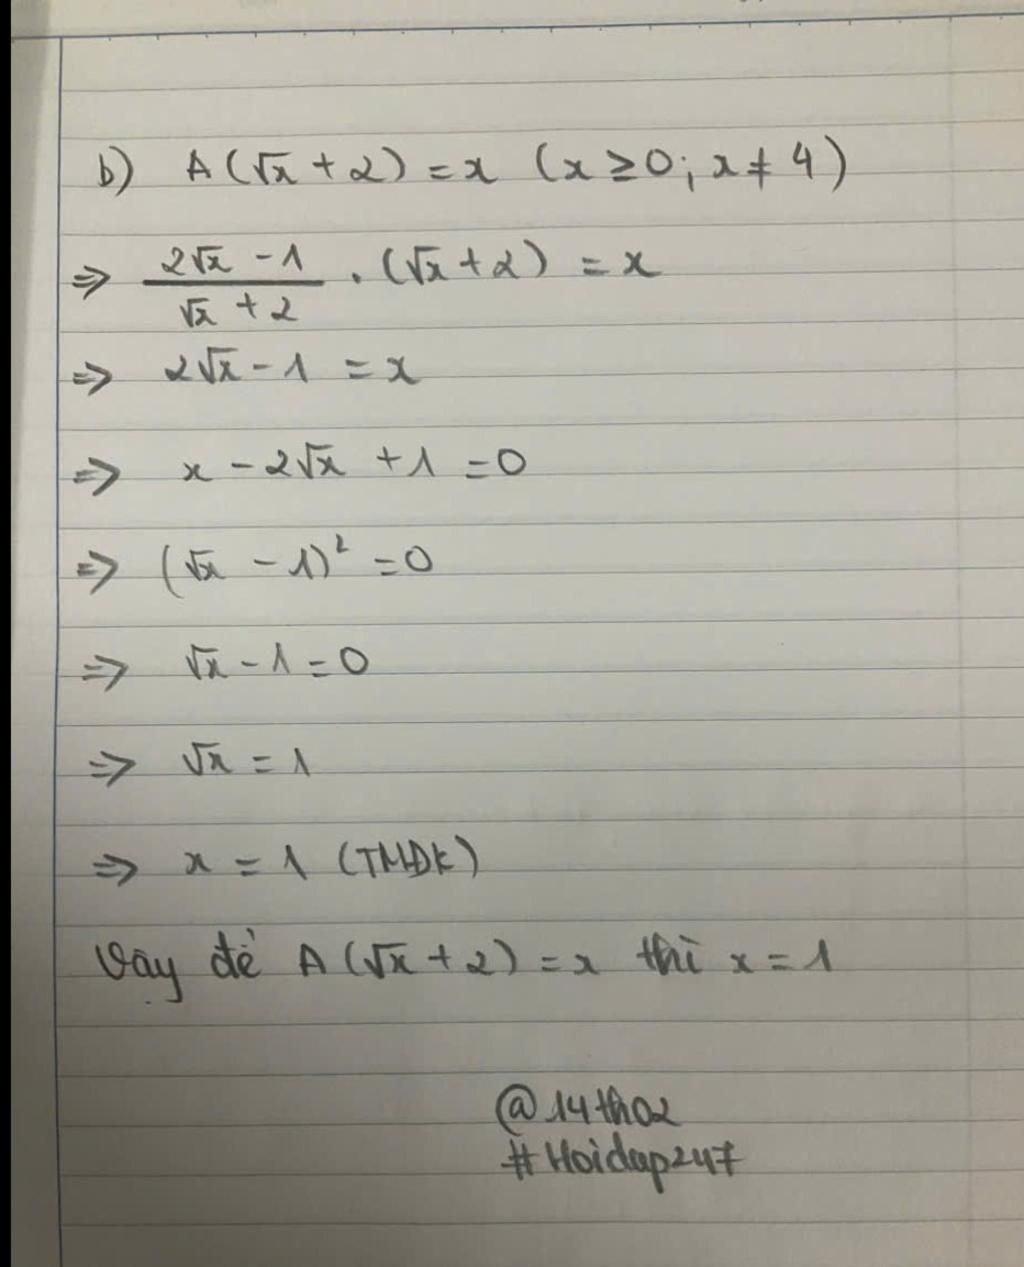 b) A(√x + 2) = x (x ≥ 0; x ≠ 4)
=> (2√x - 1)/(√x + 2) . (√x + 2) = x
=> 2√x - 1 = x
=> x - 2√x + 1 = 0
=> (√x - 1)² = 0
=> √x - 1 = 0
=> √x = 1
=> x = 1 (TMĐK)
Vậy để A(√x + 2) = x thì x = 1
@14th02
#Hoidap247